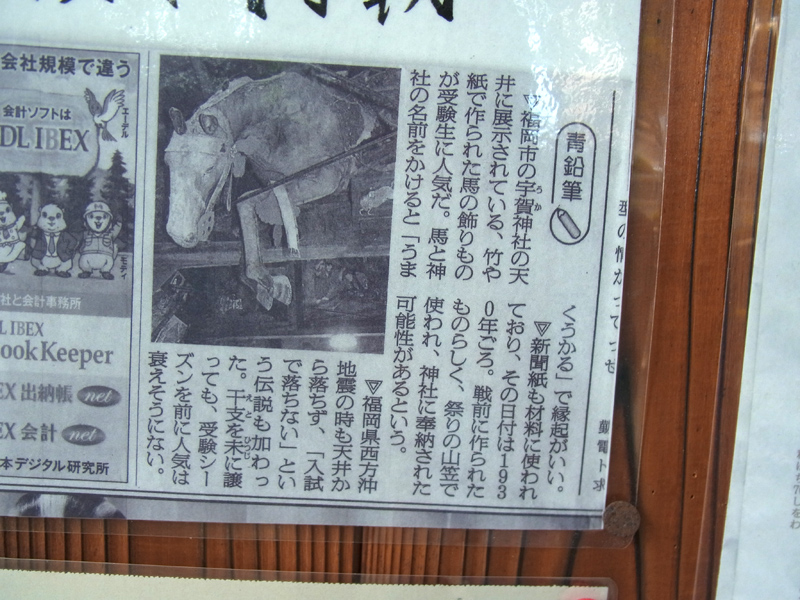 青鉛筆
▽福岡市の宇賀神社の天
井に展示されている、竹や
紙で作られた馬の飾りもの
が受験生に人気だ。馬と神
社の名前をかけると「うま
くうかる」で縁起がいい。
▽新聞紙も材料に使われ
ており、その日付は193
0年ごろ。戦前に作られた
ものらしく、祭りの山笠で
使われ、神社に奉納された
可能性があるという。
▽福岡県西方沖
地震の時も天井か
ら落ちず、「入試
で落ちない」とい
う伝説も加わっ
た。干支を未に譲
っても、受験シー
ズンを前に人気は
衰えそうにない。
うか
えと
ひつじ
会社規模で違う
会計ソフトは
DL IBEX
エーデル
モディ
社と会計事務所
L IBEX
ook Keeper
EX 出納帳 net
EX 会計 net
本デジタル研究所